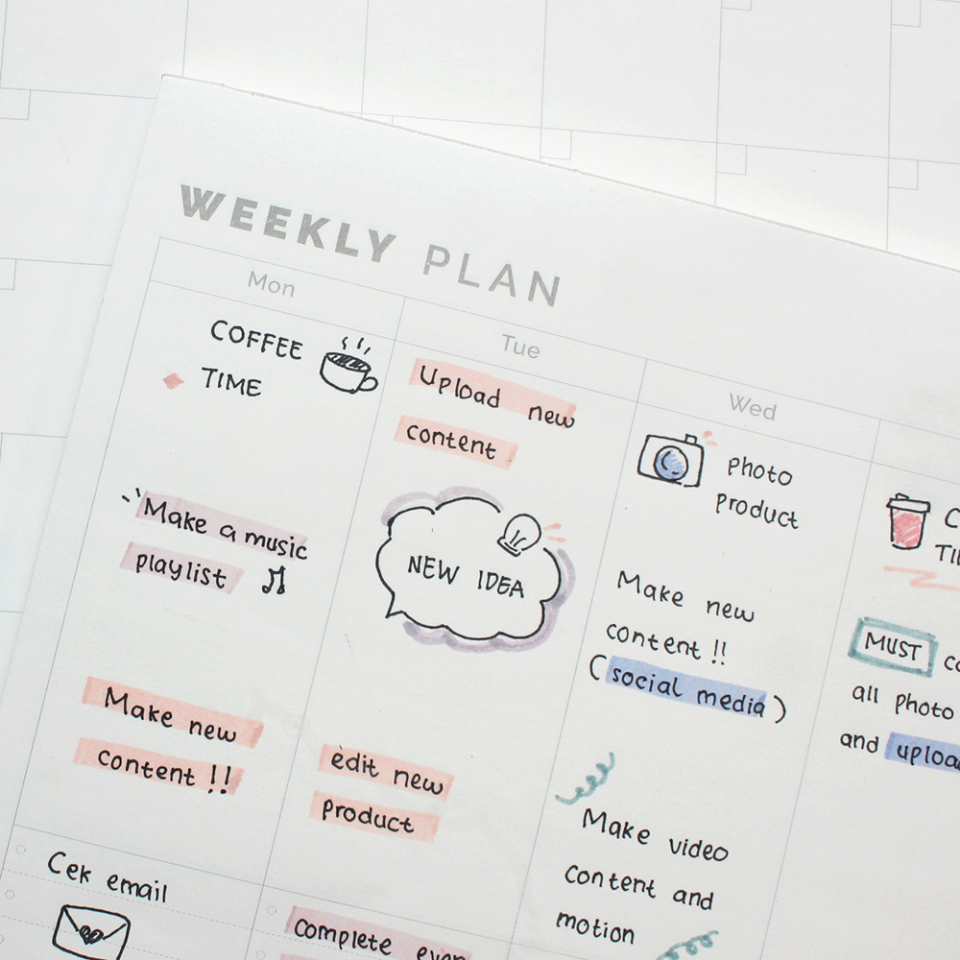 WEEKLY PLAN
Mon
COFFEE
TIME
Make a music
playlist
Make new
content !!
Cek email
Tue
Upload new
content
NEW IDEA
edit new
product
complete
Wed
Photo
Product
Make new
content !!
(social media)
Make video
content and
motion
MUST
all photo
and